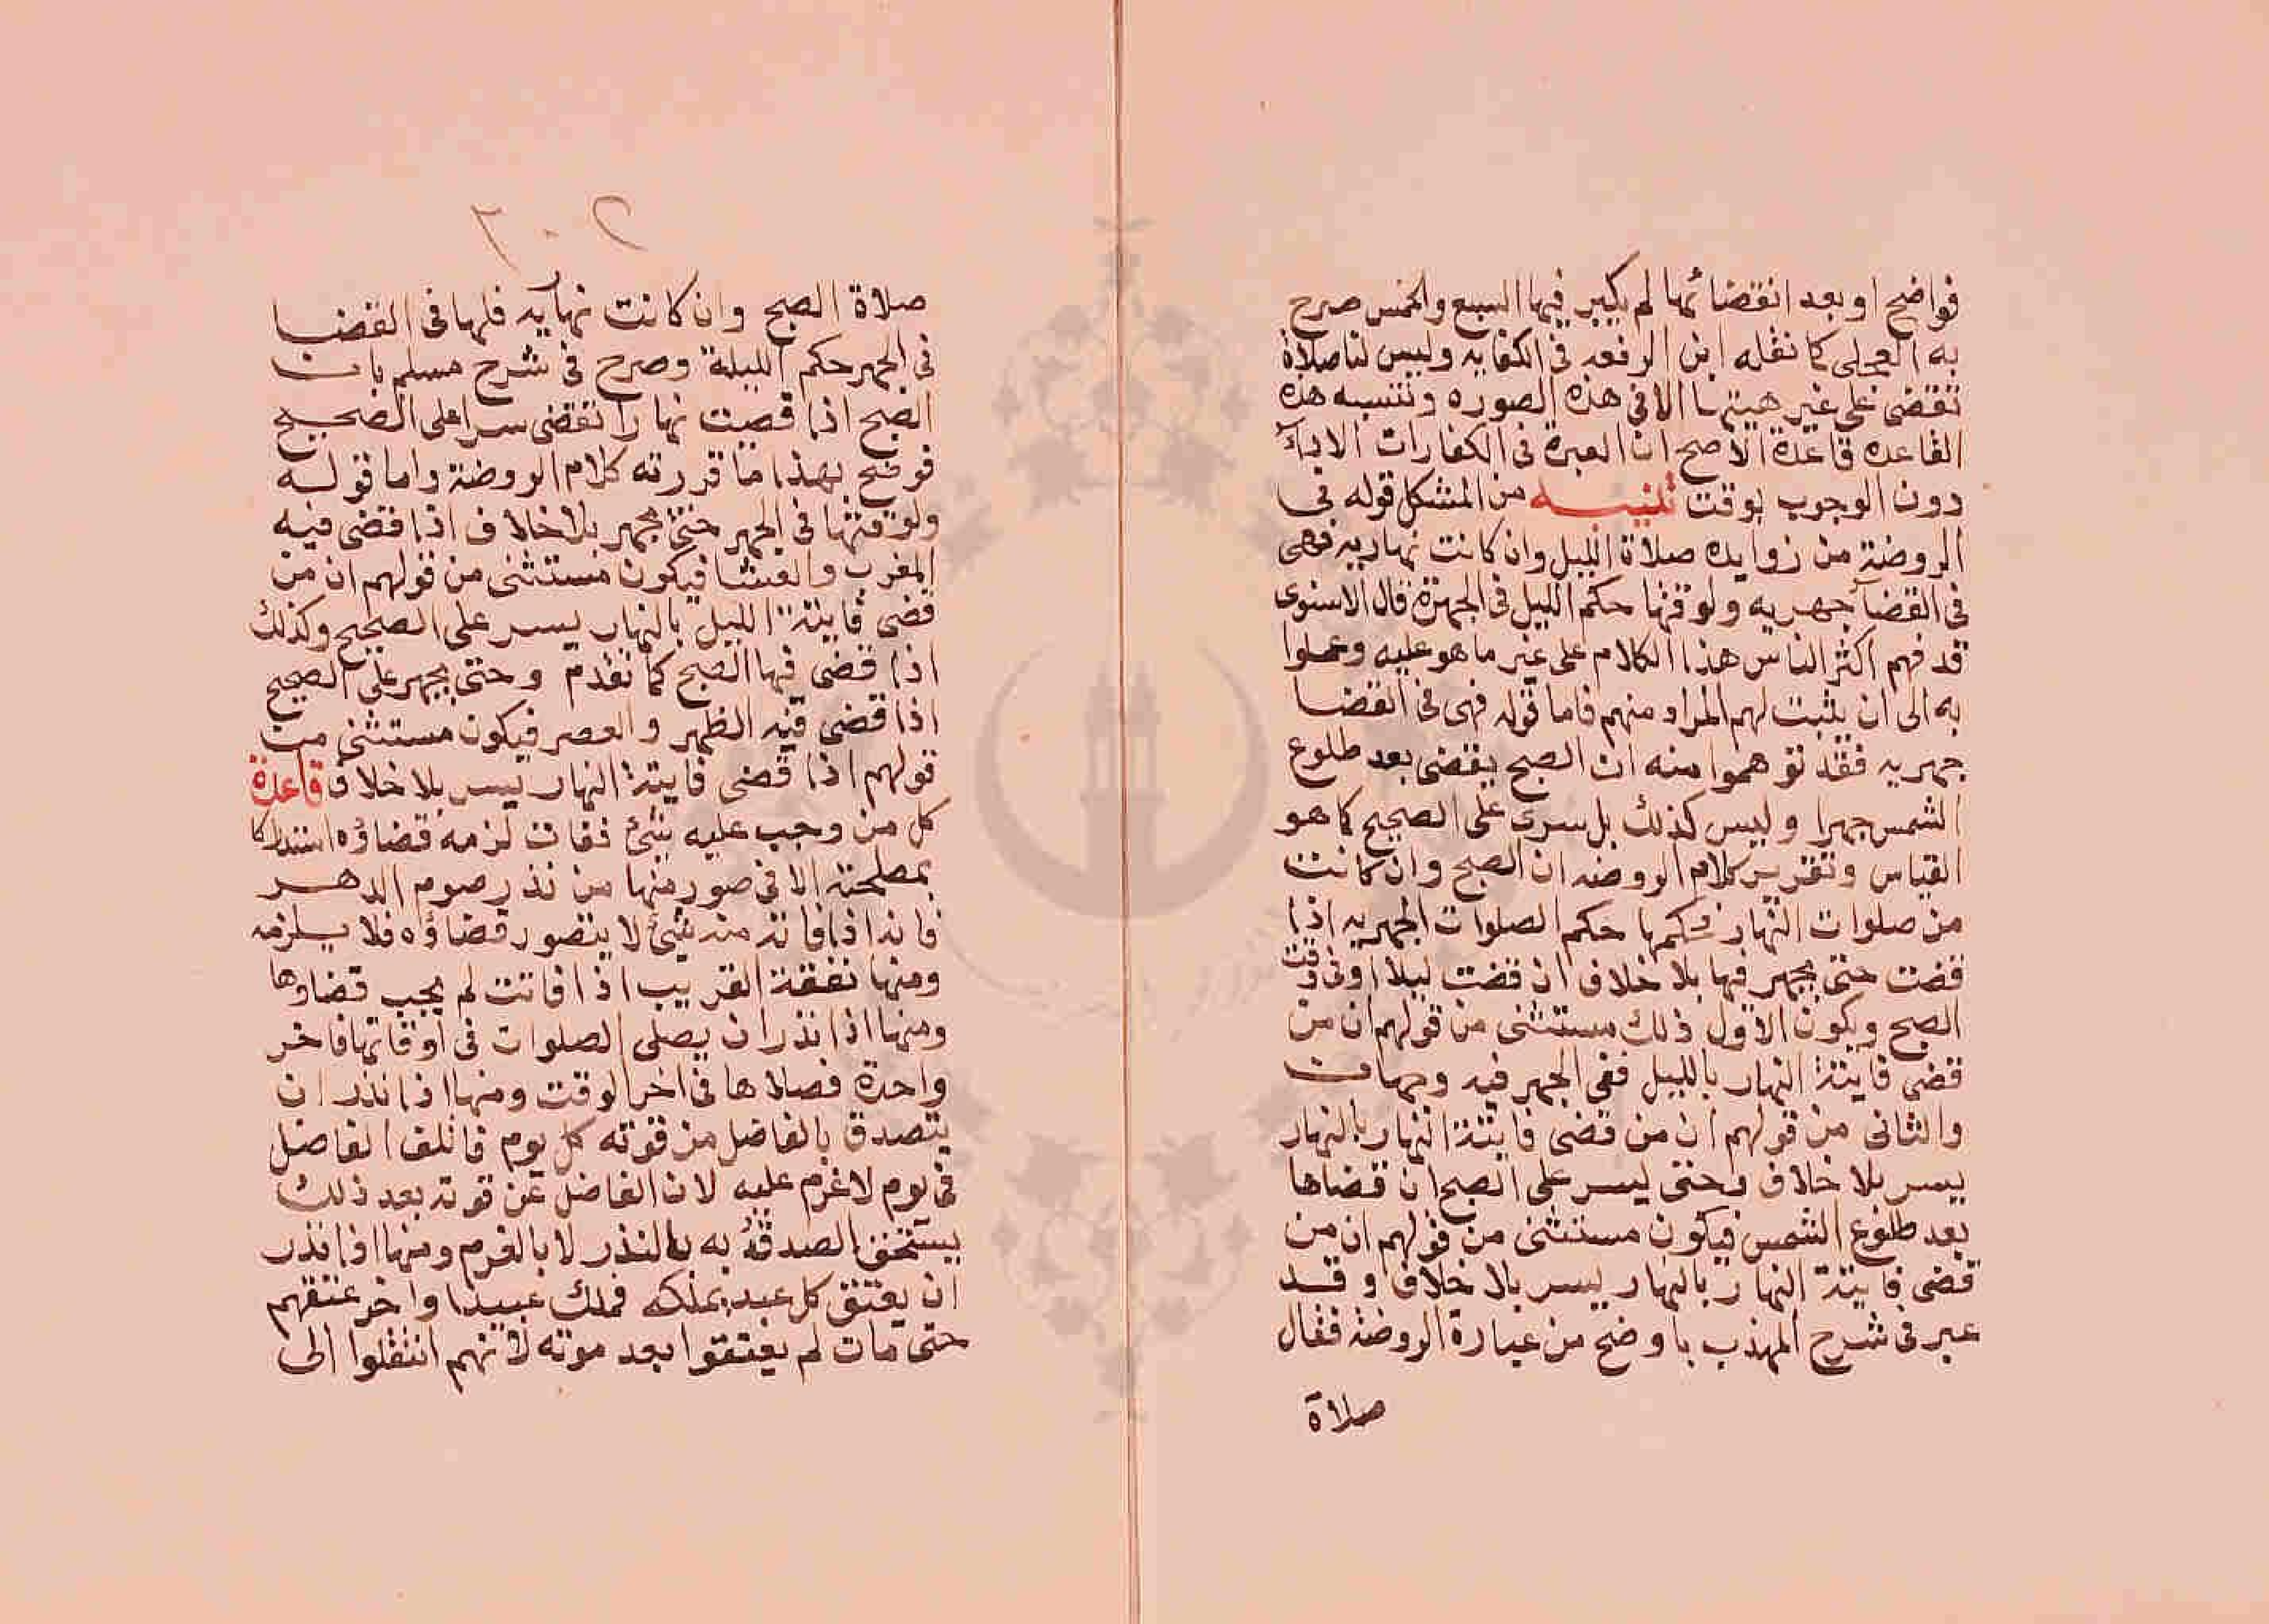 فواضح او بعد انقضائها لم يكبر فيها السبع والخمس صرح
به العجلى كما نقله ابن الرفعه في الكفايه وليس لنا صلاة
تقضى على غير هيئتها الا في هذه الصوره وتنسبه هذه
القاعده قاعدة الاصح ان العبرة فى الكفارات الادآء
دون الوجوب بوقت تنبيه من المشكل قوله فى
الروضة من زوايده صلاة الليل وان كانت نهاريه فهى
في القضآ جهريه ولوقتها حكم الليل فى الجهرة قال الاسنوى
قد فهم اكثر الناس هذا الكلام على غير ما هو عليه وعملوا
به الى ان يثبت لهم المراد منهم فاما قوله فهى فى القضا
جهريه فقد توهموا منه ان الصبح يقضى بعد طلوع
الشمس جهرا وليس كذلك بل سرى على الصحيح كما هو
القياس وتقرير كلام الروضه ان الصبح وان كانت
من صلوات النهار فحكمها حكم الصلوات الجهريه اذا
قضت حتى يجهر فيها بلا خلاف ان قضت ليلا او فى وقت
الصبح ويكون الاول ذلك مستثنى من قولهم ان من
قضى فايتة النهار بالليل ففى الجهر فيه وجهان
والثانى من قولهم ان من قضى فايتة النهار بالنهار
يسر بلا خلاف وحتى يسر على الصبح ان قضاها
بعد طلوع الشمس فيكون مستثنى من قولهم ان من
قضى فايتة النهار بالنهار يسر بلا خلاف وقد
عبر فى شرح المهذب باوضح من عبارة الروضة فقال
صلاة
٢٠٦
صلاة الصبح وان كانت نهآيه فلها فى القضا
فى الجهر حكم الليلة وصرح فى شرح مسلم بان
الصبح اذا قضيت نهارا تقضى سرا على الصحيح
فوضح بهذا ما قررته كلام الروضة واما قوله
ولوقتها فى الجهر حتى يجهر بلا خلاف اذا قضى فيه
المغرب والعشا فيكون مستثنى من قولهم ان من
قضى فايتة الليل بالنهار يسر على الصحيح وكذلك
اذا قضى فيها الصبح كما تقدم وحتى يجهر على الصحيح
اذا قضى فيه الظهر والعصر فيكون مستثنى من
قولهم اذا قضى فايتة النهار يسر بلا خلاف قاعدة
كل من وجب عليه شئ ففات لزمه قضاؤه استدراكا
بمصلحته الا فى صور منها من نذر صوم الدهر
فانه اذا فاته منه شئ لا يتصور قضاؤه فلا يلزمه
ومنها نفقة القريب اذا فاتت لم يجب قضاوها
ومنها اذا نذر ان يصلى الصلوات فى اوقاتها فاخر
واحدة فصلاها فى اخر الوقت ومنها اذا نذر ان
يتصدق بالفاضل من قوته كل يوم فاتلف الفاضل
فى يوم لا غرم عليه لان الفاضل عن قوته بعد ذلك
يستحق الصدقة به بالنذر لا بالغرم ومنها اذا نذر
ان يعتق كل عبد يملكه فملك عبيدا واخر عتقهم
حتى مات لم يعتقوا بعد موته لانهم انتقلوا الى